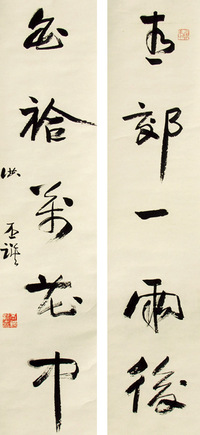 青郊一雨後
白袷萬花中
洪丕謨